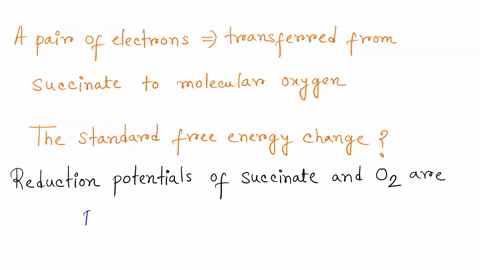 A pair of electrons ⇒ transferred from
succinate to molecular oxygen
The standard free energy change ?
Reduction potentials of succinate and O2 are